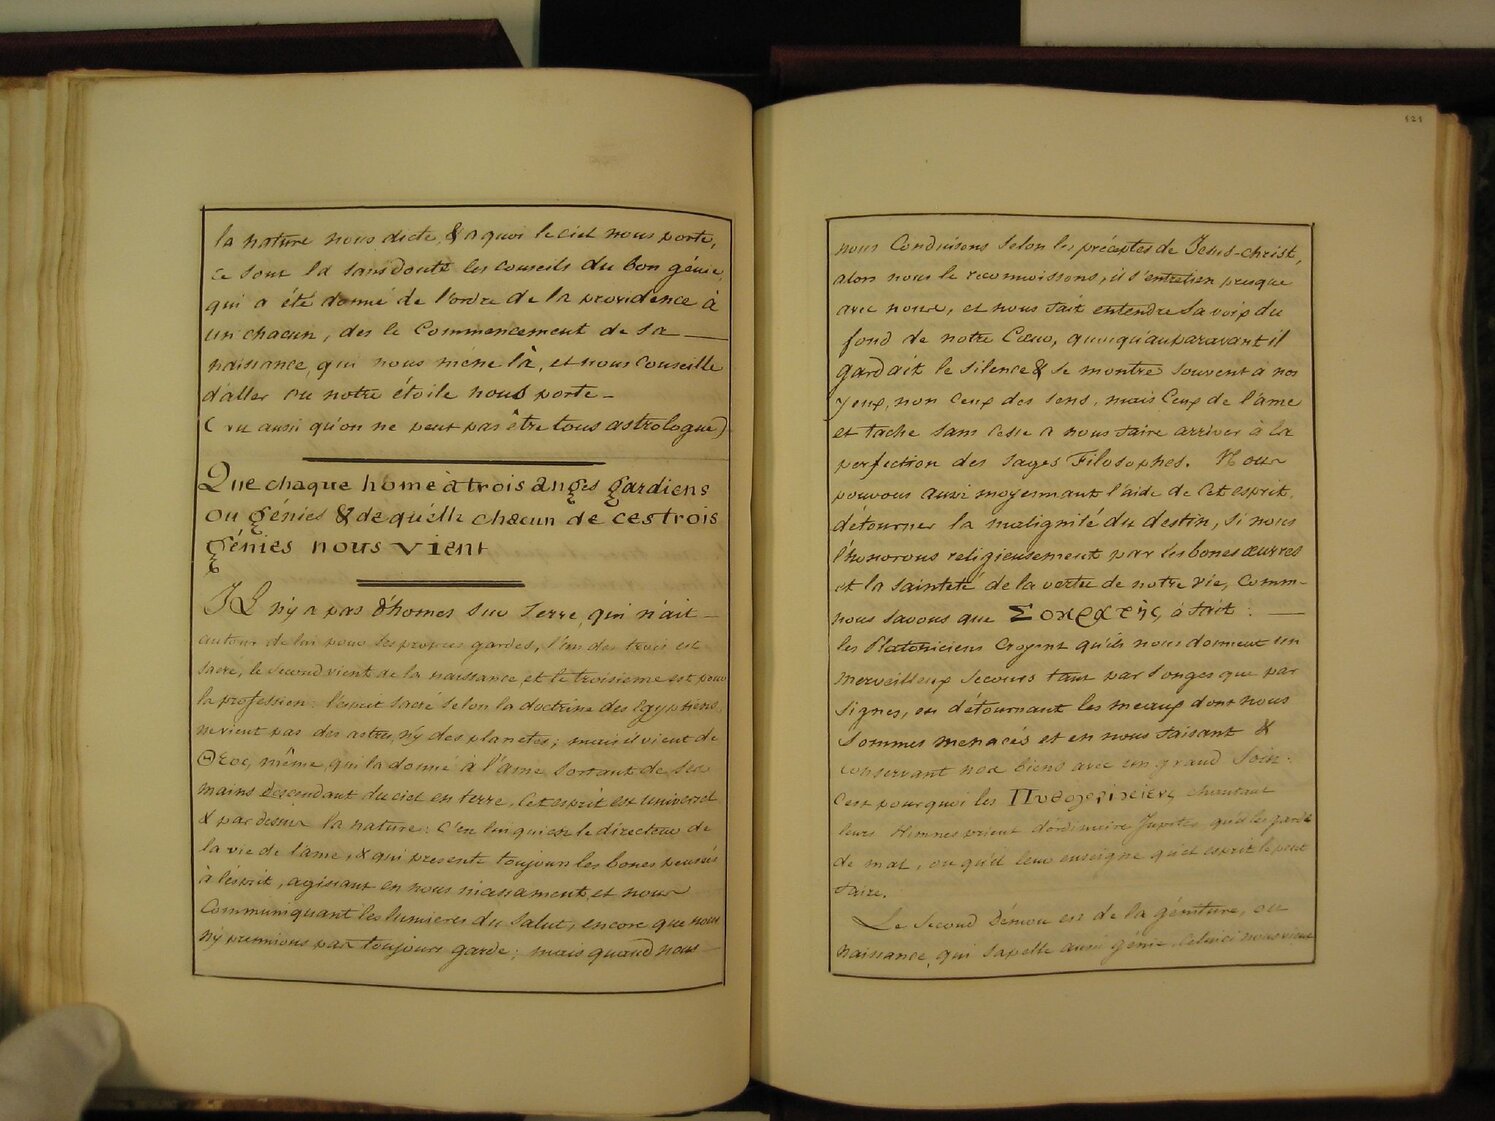 la nature nous dicte, & a quoi le ciel nous porte,
ce sont la sans Doute les conseils du bon génie,
qui a été donné de l'ordre de la providence à
un chacun, des le Commencement de sa
naissance, qui nous mêne là, et nous Conseille
d'aller ou notre étoile nous porte_
( vu aussi qu'on ne peut pas être tous astrologue)
Que chaque home à trois anges gardiens
ou génies & de quélle chacun de ces trois
génies nous vient
IL n'y a pas d'homes sur Terre, qui n'ait
autour de lui pour ses propres gardes, l'un des trois est
sacré, le second vient de la naissance, et le troisieme est pour
la profession: l'esprit sacré selon la doctrine des Egyptiens,
ne vient pas des astres, n'y des planetes; mais il vient de
Θεος, même, qui la donné a l'ame sortant de ses
mains Descendant du ciel en terre. Cet esprit est universel
& par dessus la nature: C'est lui qui est le directeur de
la vie de l'ame, & qui presente toujours les bones pensées
à l'esprit, agissant en nous incessament, et nous
Communiquant les lumieres du salut, encore que nous
n'y prennions pas toujours garde; mais quand nous
121
nous Conduisons selon les préceptes de Jesus-christ,
alors nous le reconnoissons, il s'entretien presque
avec nous, et nous fait entendre sa voix du
fond de notre Cœur, quoiqu'auparavant il
gardait le silence & se montre souvent à nos
yeux, non ceux des sens, mais Ceux de l'ame
et tache sans cesse a nous faire arriver à la
perfection des sages Filosophes. Nous
pouvons aussi moyennant l'aide de Cet esprit,
détourner la malignité du destin, si nous
l'honorons religieusement par les bones œuvres
et la sainteté de la vertu de notre vie, Comm-
nous savons que Σοκρατης, à fait:
les Platoniciens Croyent qu'ils nous donnent un
merveilleux secours tant par songes que par
signes, en détournant les meaux dont nous
sommes menacés et en nous faisant &
conservant nos biens avec un grand Soin:
C'est pourquoi les chantant
leurs Himnes prient d'ordinaire Jupiter, qu'il les garde
de mal, ou qu'il leur enseigne qu'el esprit le peut
faire.
Le Second Démon est de la géniture, ou
naissance, qui s'apelle aussi génie. Celui ci nous vient